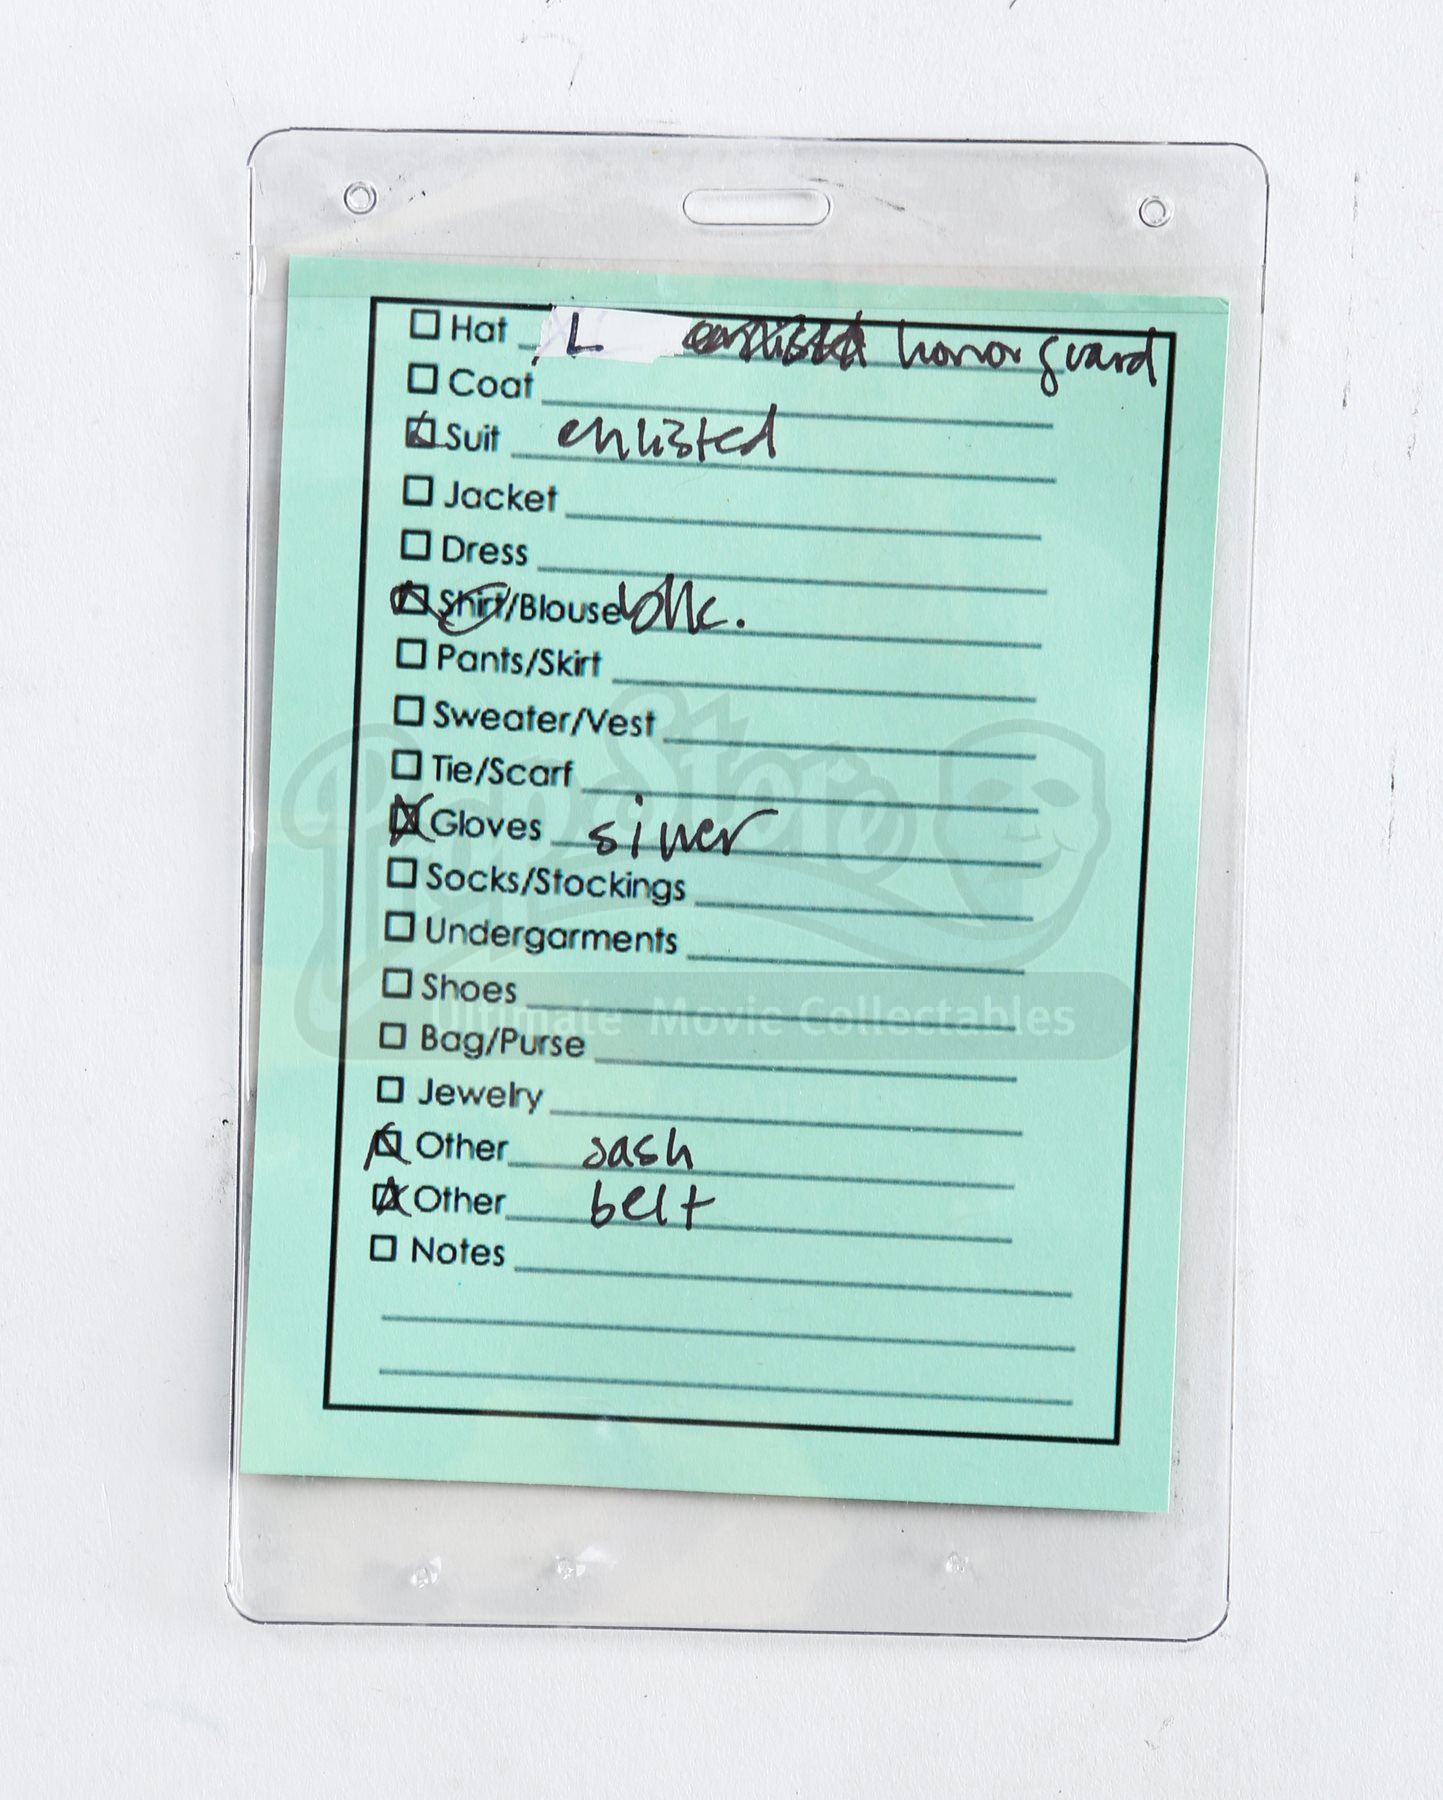 Hat L enlisted honor guard
Coat
Suit enlisted
Jacket
Dress
Shirt/Blouse blk.
Pants/Skirt
Sweater/Vest
Tie/Scarf
Gloves silver
Socks/Stockings
Undergarments
Shoes
Bag/Purse
Jewelry
Other sash
Other belt
Notes
PropStore
Ultimate Movie Collectables